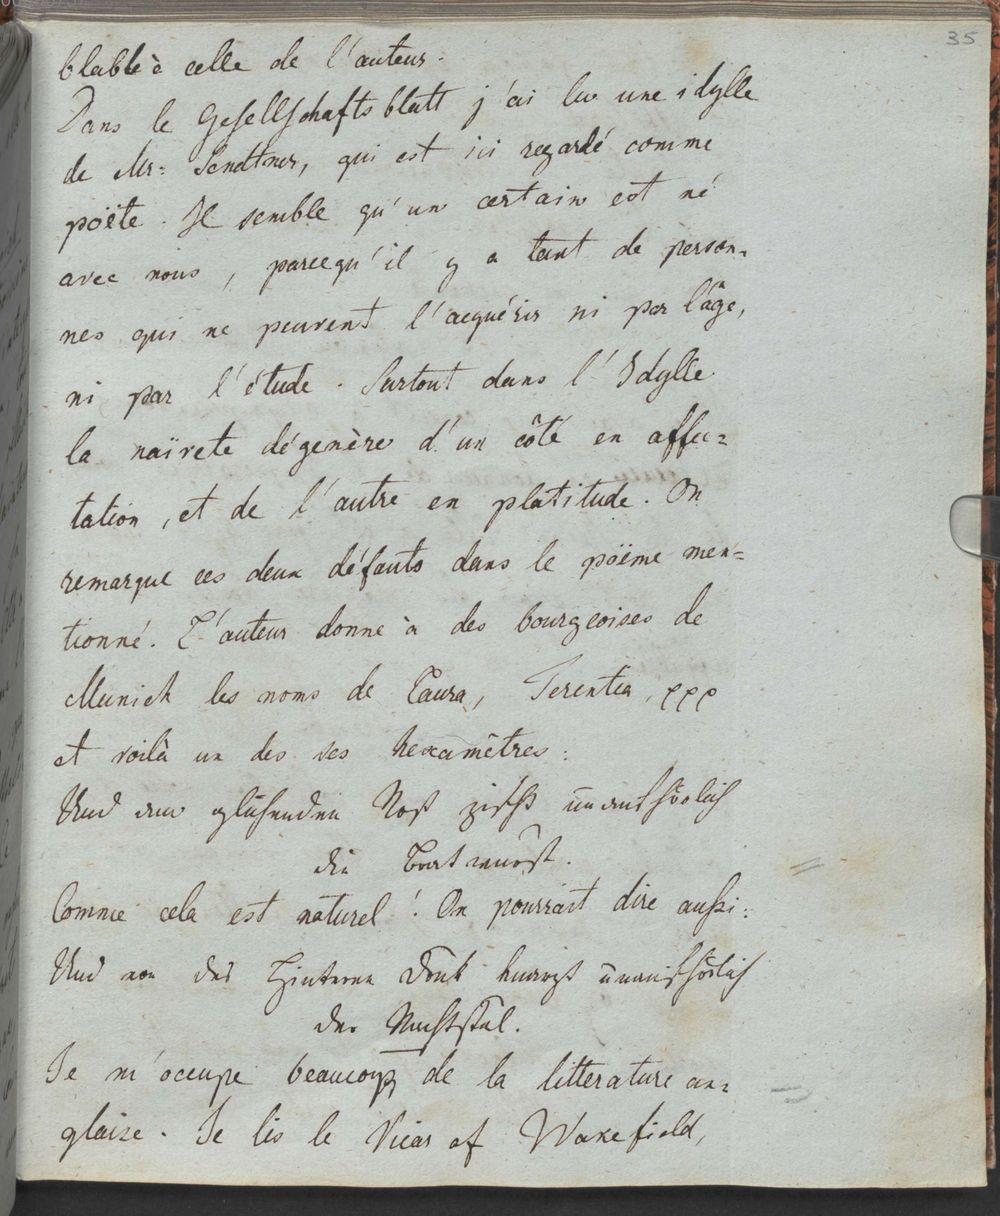 35
blable à celle de l'auteur.
Dans le Gesellschaftsblatt j'ai lu une idylle
de Mr: Sendtner, qui est ici regardé comme
poëte. Il semble qu'un certain est né
avec nous, parcequ'il y a tant de person-
nes qui ne peuvent l'acquérir ni par l'âge,
ni par l'étude. Surtout dans l'Idylle
la naïvete dégenère d'un côté en affec-
tation, et de l'autre en platitude. On
remarque ces deux défauts dans le poëme men-
tionné. L'auteur donne à des bourgeoises de
Munich les noms de Laura, Terentia, ppp
et voilà un des ses hexamètres:
Und am glühenden Rost zischt unaufhörlich
die Bratwurst.
Comme cela est naturel! On pourrait dire aussi:
Und von des Hinteren Druk knarzt unaufhörlich
der Nachtstul.
Je m'occupe beaucoup de la litterature an-
glaise. Je lis le Vicar of Wakefield,